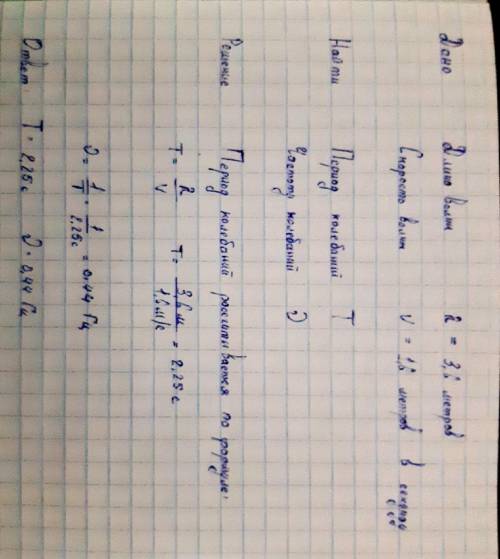 Дано Длина волны R = 3,6 метров
Скорость волны V = 1,6 метров в секунду
Найти Период колебаний T
Частоту колебаний υ
Решение Период колебаний рассчитывается по формуле:
T = R/V T = 3,6 м/1,6 м/с = 2,25 с
υ = 1/T = 1/2,25с = 0,44 Гц
Ответ T = 2,25 с υ = 0,44 Гц